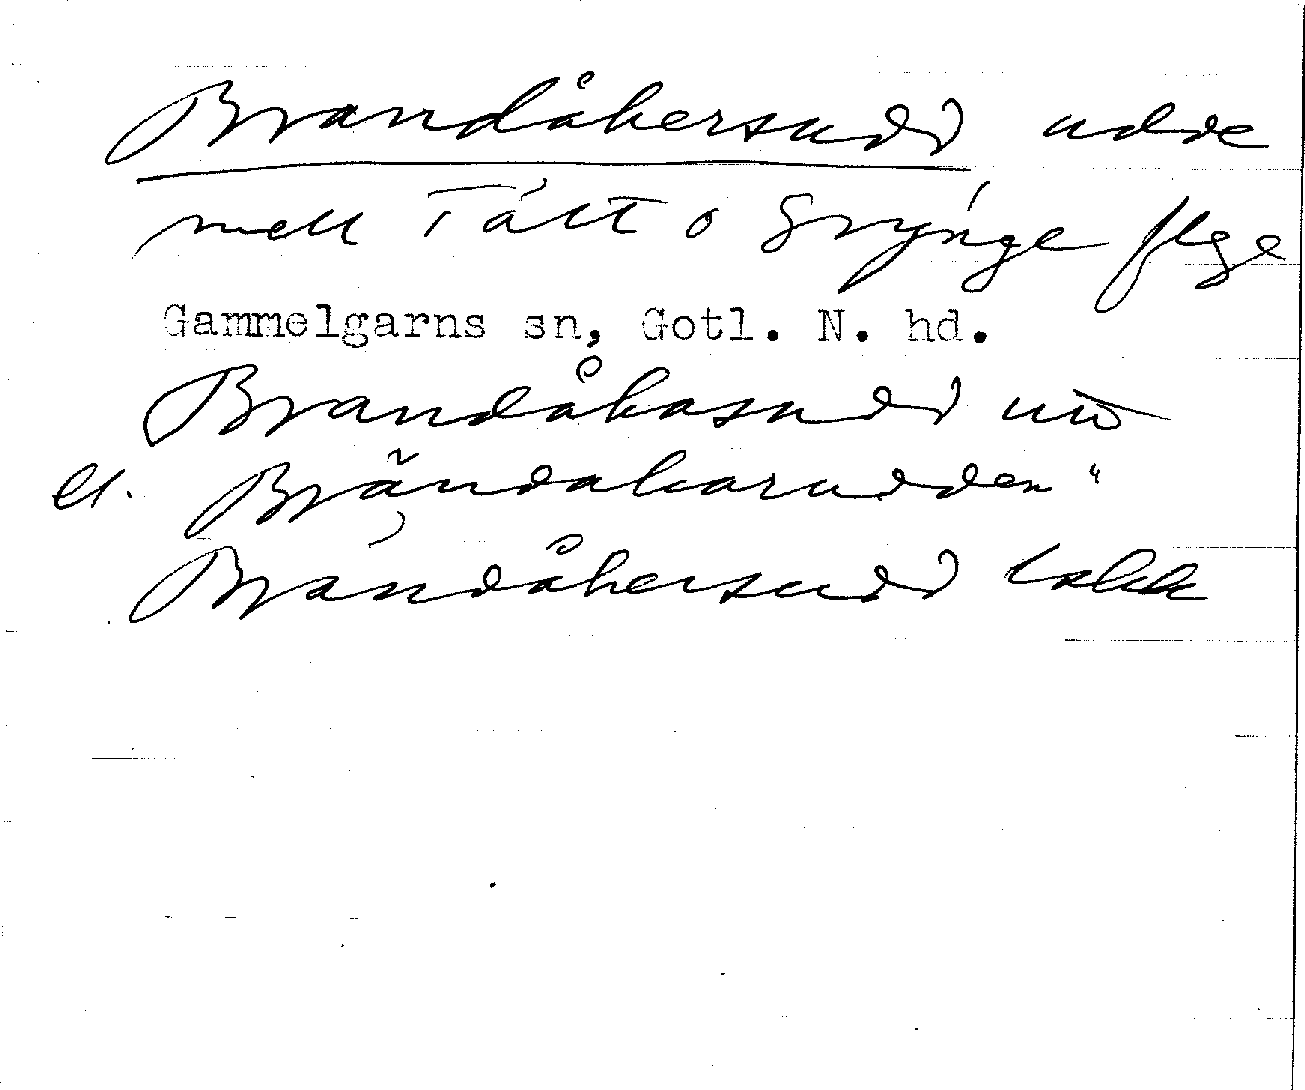 Brandåkersudd udde
mell Tält o Grynge flge
Gammelgarns sn, Gotl. N. hd.
Brandåkasudd
el. Brändakarudden"
Brandåkersudd lokk